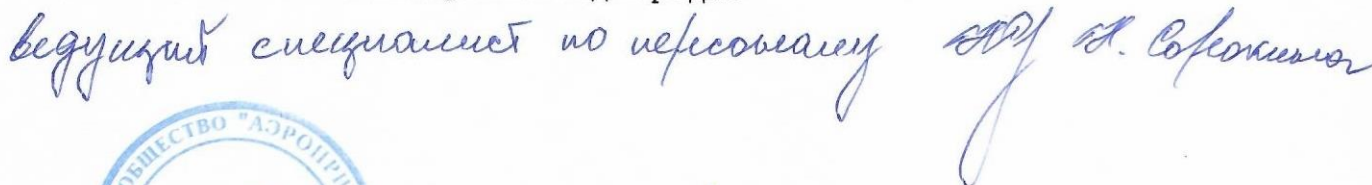 ведущий специалист по персоналу Н. Сорокина
ОБЩЕСТВО "АЭРОПРИ